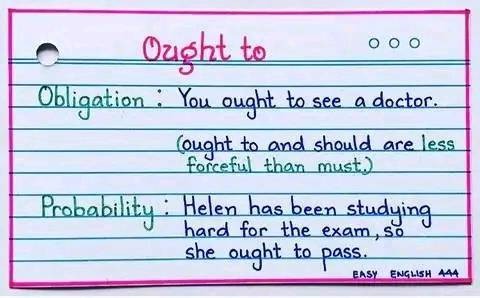 Ought to
Obligation : You ought to see a doctor.
(ought to and should are less
forceful than must.)
Probability : Helen has been studying
hard for the exam, so
she ought to pass.
EASY ENGLISH 444